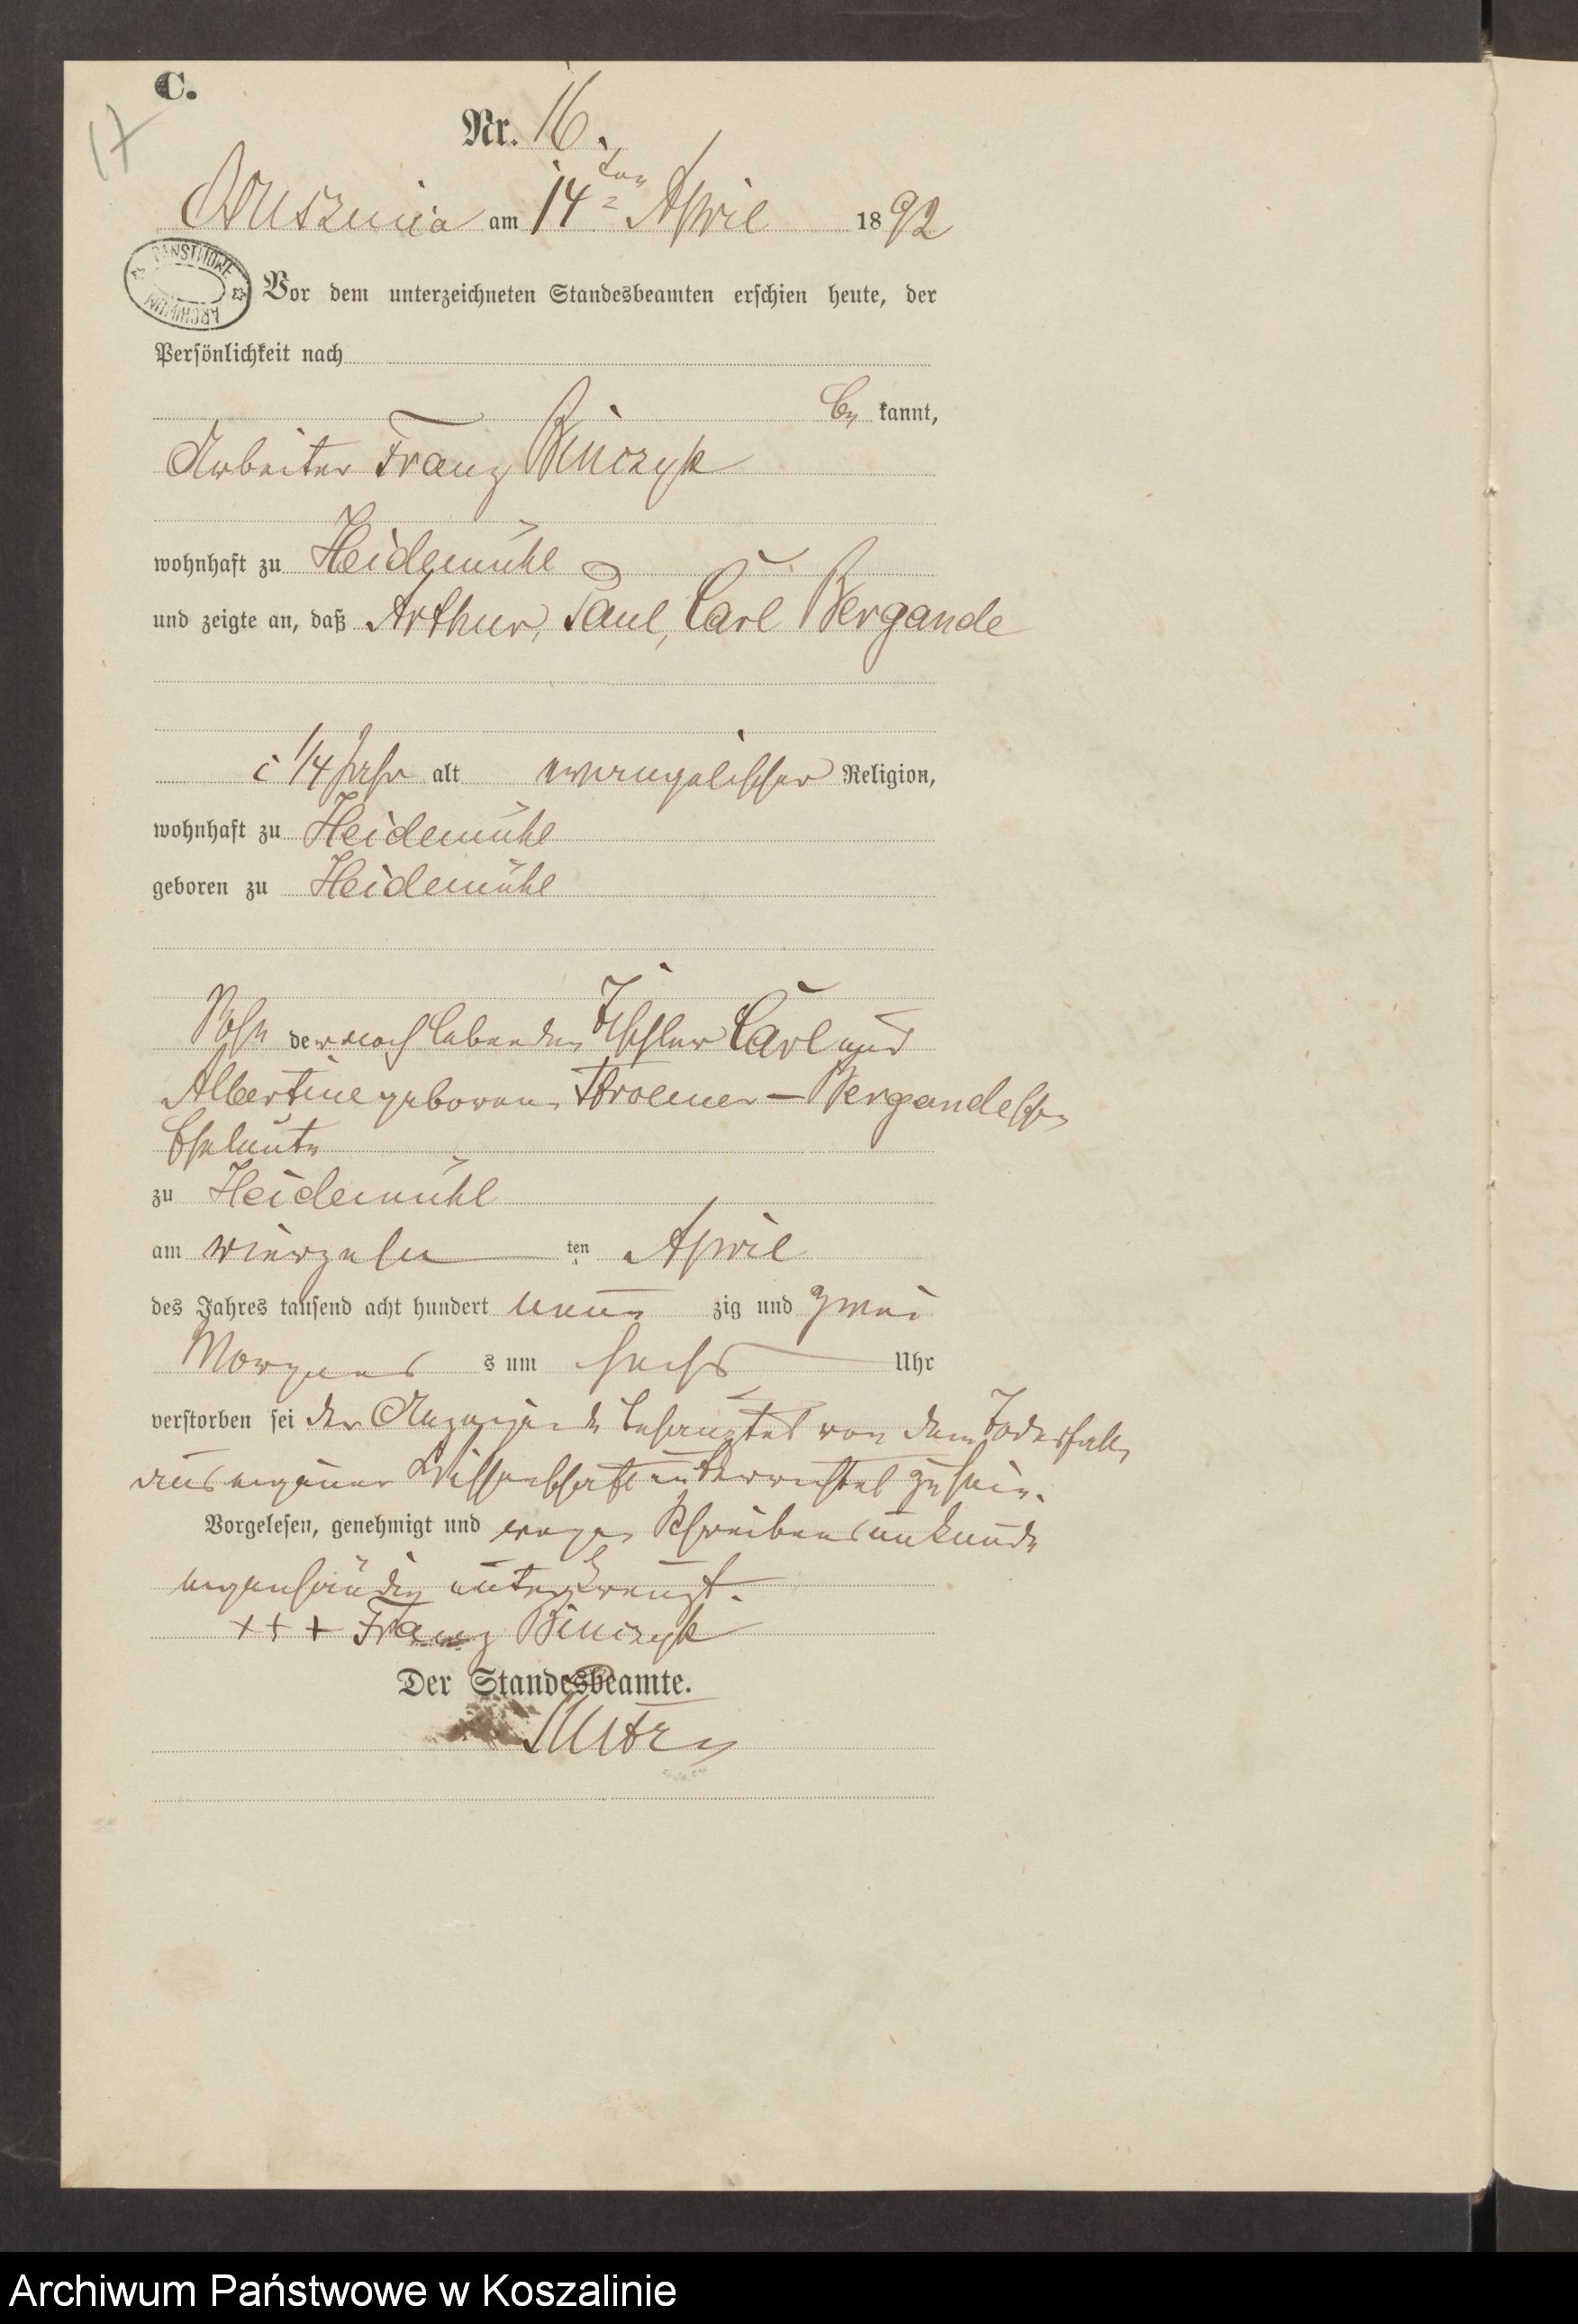 C.
17
Nr. 16.
am 14ten April 1892
PAŃSTWOWE ARCHIWUM
Vor dem unterzeichneten Standesbeamten erschien heute, der
Persönlichkeit nach
be kannt,
Arbeiter Franz Binczyk
wohnhaft zu Heidemühl
und zeigte an, daß Arthur, Paul, Carl Bergande
1/4 Jahr alt evangelischer Religion,
wohnhaft zu Heidemühl
geboren zu Heidemühl
Sohn der noch lebenden Tischler Carl und
Albertine geborene Bergandeschen
Eheleute
zu Heidemühl
am vierzehn ten April
des Jahres tausend acht hundert neun zig und zwei
Morgens s um sechs Uhr
verstorben sei der Anzeigende behauptet von dem Todesfalle
aus eigener Wissenschaft unterrichtet zu sein.
Vorgelesen, genehmigt und wegen Schreibensunkunde
eigenhändig unterkreuzt.
+++ Franz Binczyk
Der Standesbeamte.
Archiwum Państwowe w Koszalinie